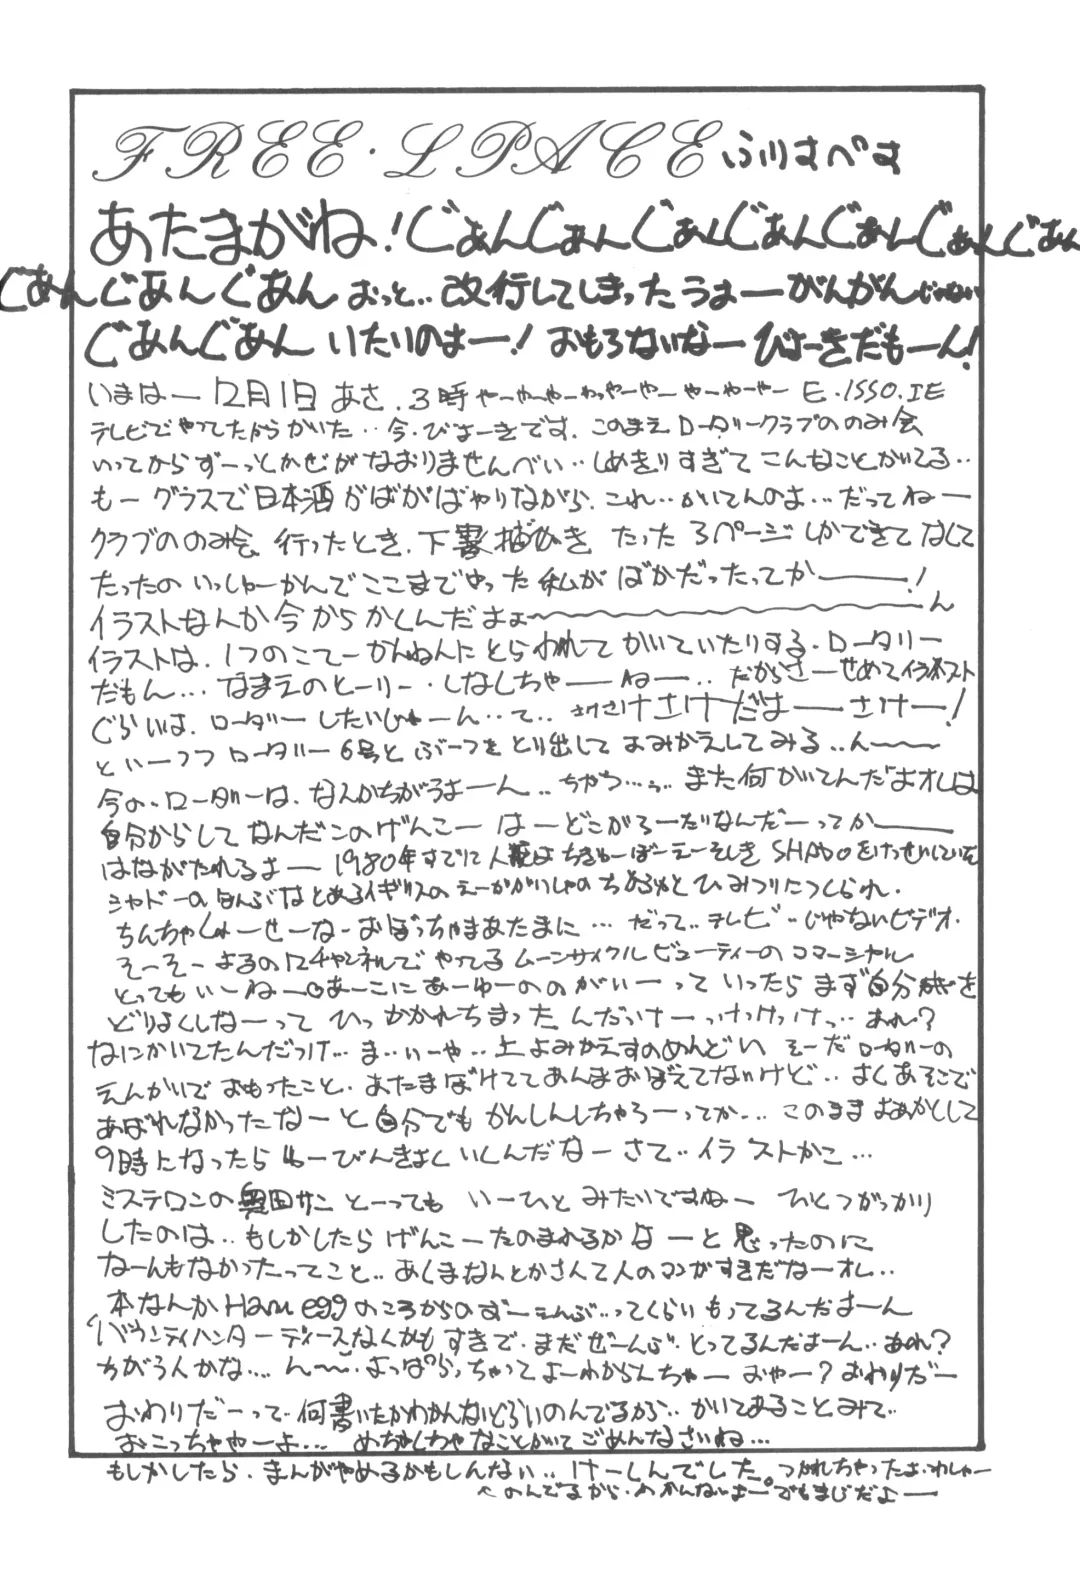 FREE・SPACE ふりすぺす
あたまがね!ぐあんぐあんぐあんぐあんぐあんぐあんぐあん
ぐあんぐあんぐあん おっと‥改行してしまったうおーがんがんじゃない
ぐあんぐあん いたいのよー! おもろないなー びょーきだもーん!
いまはー 12月1日 あさ.3時 やーやーやーわっやーやー やーやーやー E.ISSO.IE
テレビでやってたからかいた‥今.びょーきです.このまえロータリークラブののみ会
いってからずーっとかぜがなおりませんべい‥しめきりすぎてこんなことかいてる‥
もーグラスで日本酒がばがばやりながら.これ‥かいてんのよ…だってねー
クラブののみ会 行ったとき.下書描き たった 3ページしかできてなくて
たったのいっしゅーかんでここまでやった私がばかだったってかー!
イラストなんか今からかくんだよォ〜ん
イラストは.1つのこてーかんねんにとらわれてかいていたりする.ロータリー
だもん…なまえのとーりー.しなくちゃーねー‥だからさーせめてイラスト
ぐらいは.ローダー したいじゃーん‥て‥さけさけさけさけだよーさけー!
といーつつロータリー6号とぶーつをとり出してよみかえしてみる‥ん〜
今の.ローダーは.なんかちがうよーん‥ちがう…‥また何かいてんだよオレは
自分からしてなんだこのげんこー はーどこがろーたりなんだーってかー
はながたれるよー 1980年すでに人類はちきゅーぼーえーそしき SHADOをけっせいしていた
シャドーのほんぶはとあるイギリスのえーがかいしゃのちかふかくひみつりにつくられ.
ちんちゃくゅーせーな.おぼっちゃまあたまに…だって‥テレビ‥じゃないビデオ.
そーそーよるの12チャンネルで やってる ムーンサイクル ビューティーのコマーシャル
とってもいーねー あーこにあーゆーののがいーっていったらまず自分を
どりょくしなーって ひっかかれちまった んだっけーっけっけっけっ‥あれ?
なにかいてたんだっけ…ま‥いーや‥上よみかえすのめんどい そーだロータリーの
えんかいで おもったこと.あたまぼけててあんまおぼえてないけど‥よくあそこで
あばれなかったなーと自分でもかんしんしちゃうーってか…このままおあがとして
9時になったらゆーびんきょくいくんだなーさて‥イラストかこ…
ミステロンの奥田サン とーっても いーひと みたいですねー ひとつがっかり
したのは‥もしかしたら げんこーたのまれるかなーと思ったのに
なーんもなかったってこと‥あくまなんとかさんて人のマンガすきだなーオレ‥
本なんかHam eggのころからのずーえんぶ‥ってくらいもってるんだよーん
バウンティハンターディースなくかもすきで.まだぜーんぶ.とってるんだよーん‥あれ?
ちがう人かな…ん〜.よっぱらっちゃってよーわからんちゃー おやー?おわりだー
おわりだーって.何書いたかわかんないぐらいのんでるから‥かいてあることみて.
おこっちゃやーよ…めちゃくちゃなことかいて ごめんなさいね…
もしかしたら.まんがやめるかもしんない‥けーしんでした。つかれちゃったよ.わしゃー
のんでるから.わかんないよーでもまじだよー